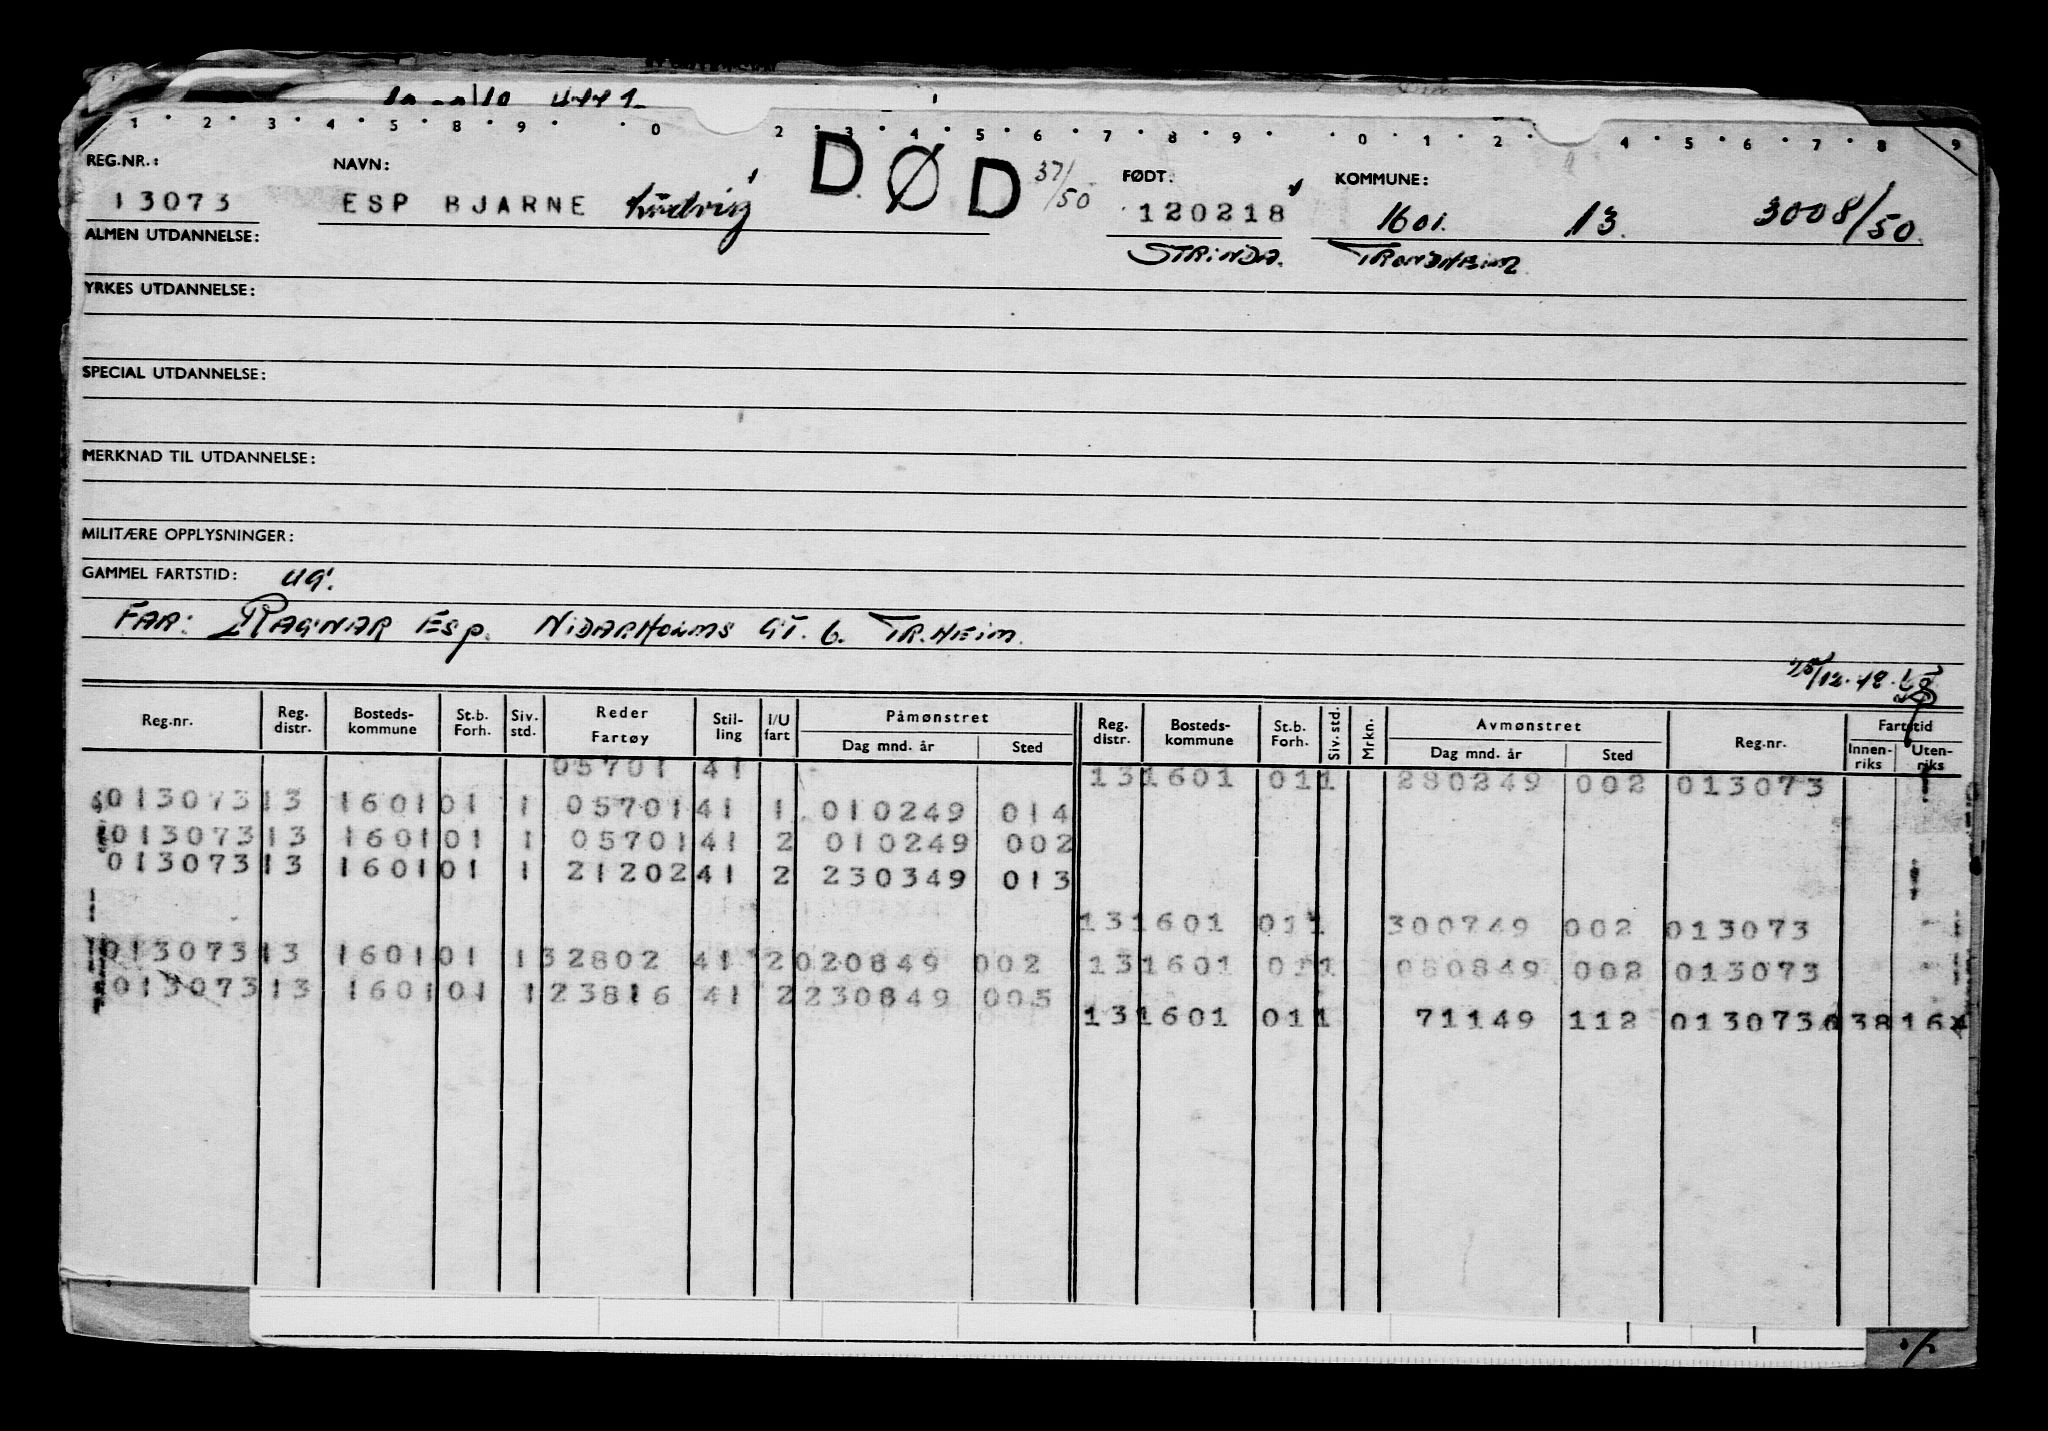 1 2 3 4 5 8 9 0 2 3 4 5 6 7 8 9 0 1 2 4 5 6 7 8 9
REG.NR.: NAVN: DØD 37/50 FØDT: KOMMUNE:
13073 ESP BJARNE Ludvig 120218 1601. 13. 3008/50.
ALMEN UTDANNELSE: STRINDA. TRONDHEIM
YRKES UTDANNELSE:
SPECIAL UTDANNELSE:
MERKNAD TIL UTDANNELSE:
MILITÆRE OPPLYSNINGER:
GAMMEL FARTSTID: ug.
FAR: RAGNAR ESP. NIDARHOLMS GT. 6. TR.HEIM.
Reg.nr. Reg. distr. Bosteds- kommune St.b. Forh. Siv. std. Reder Fartøy Stil- ling I/U fart Påmønstret Dag mnd. år Sted Reg. distr. Bosteds- kommune St.b. Forh. Siv. std. Mrkn. Avmønstret Dag mnd. år Sted Reg.nr. Fartstid Innen- riks Uten- riks
05701 41 13 1601 01 1 280249 002 013073
013073 13 1601 01 1 05701 41 1 010249 014
013073 13 1601 01 1 05701 41 2 010249 002
013073 13 1601 01 1 21202 41 2 230349 013
13 1601 01 1 300749 002 013073
013073 13 1601 01 1 32802 41 2 020849 002 13 1601 01 1 080849 002 013073
013073 13 1601 01 1 23816 41 2 230849 005
13 1601 01 1 71149 112 013073 038 164